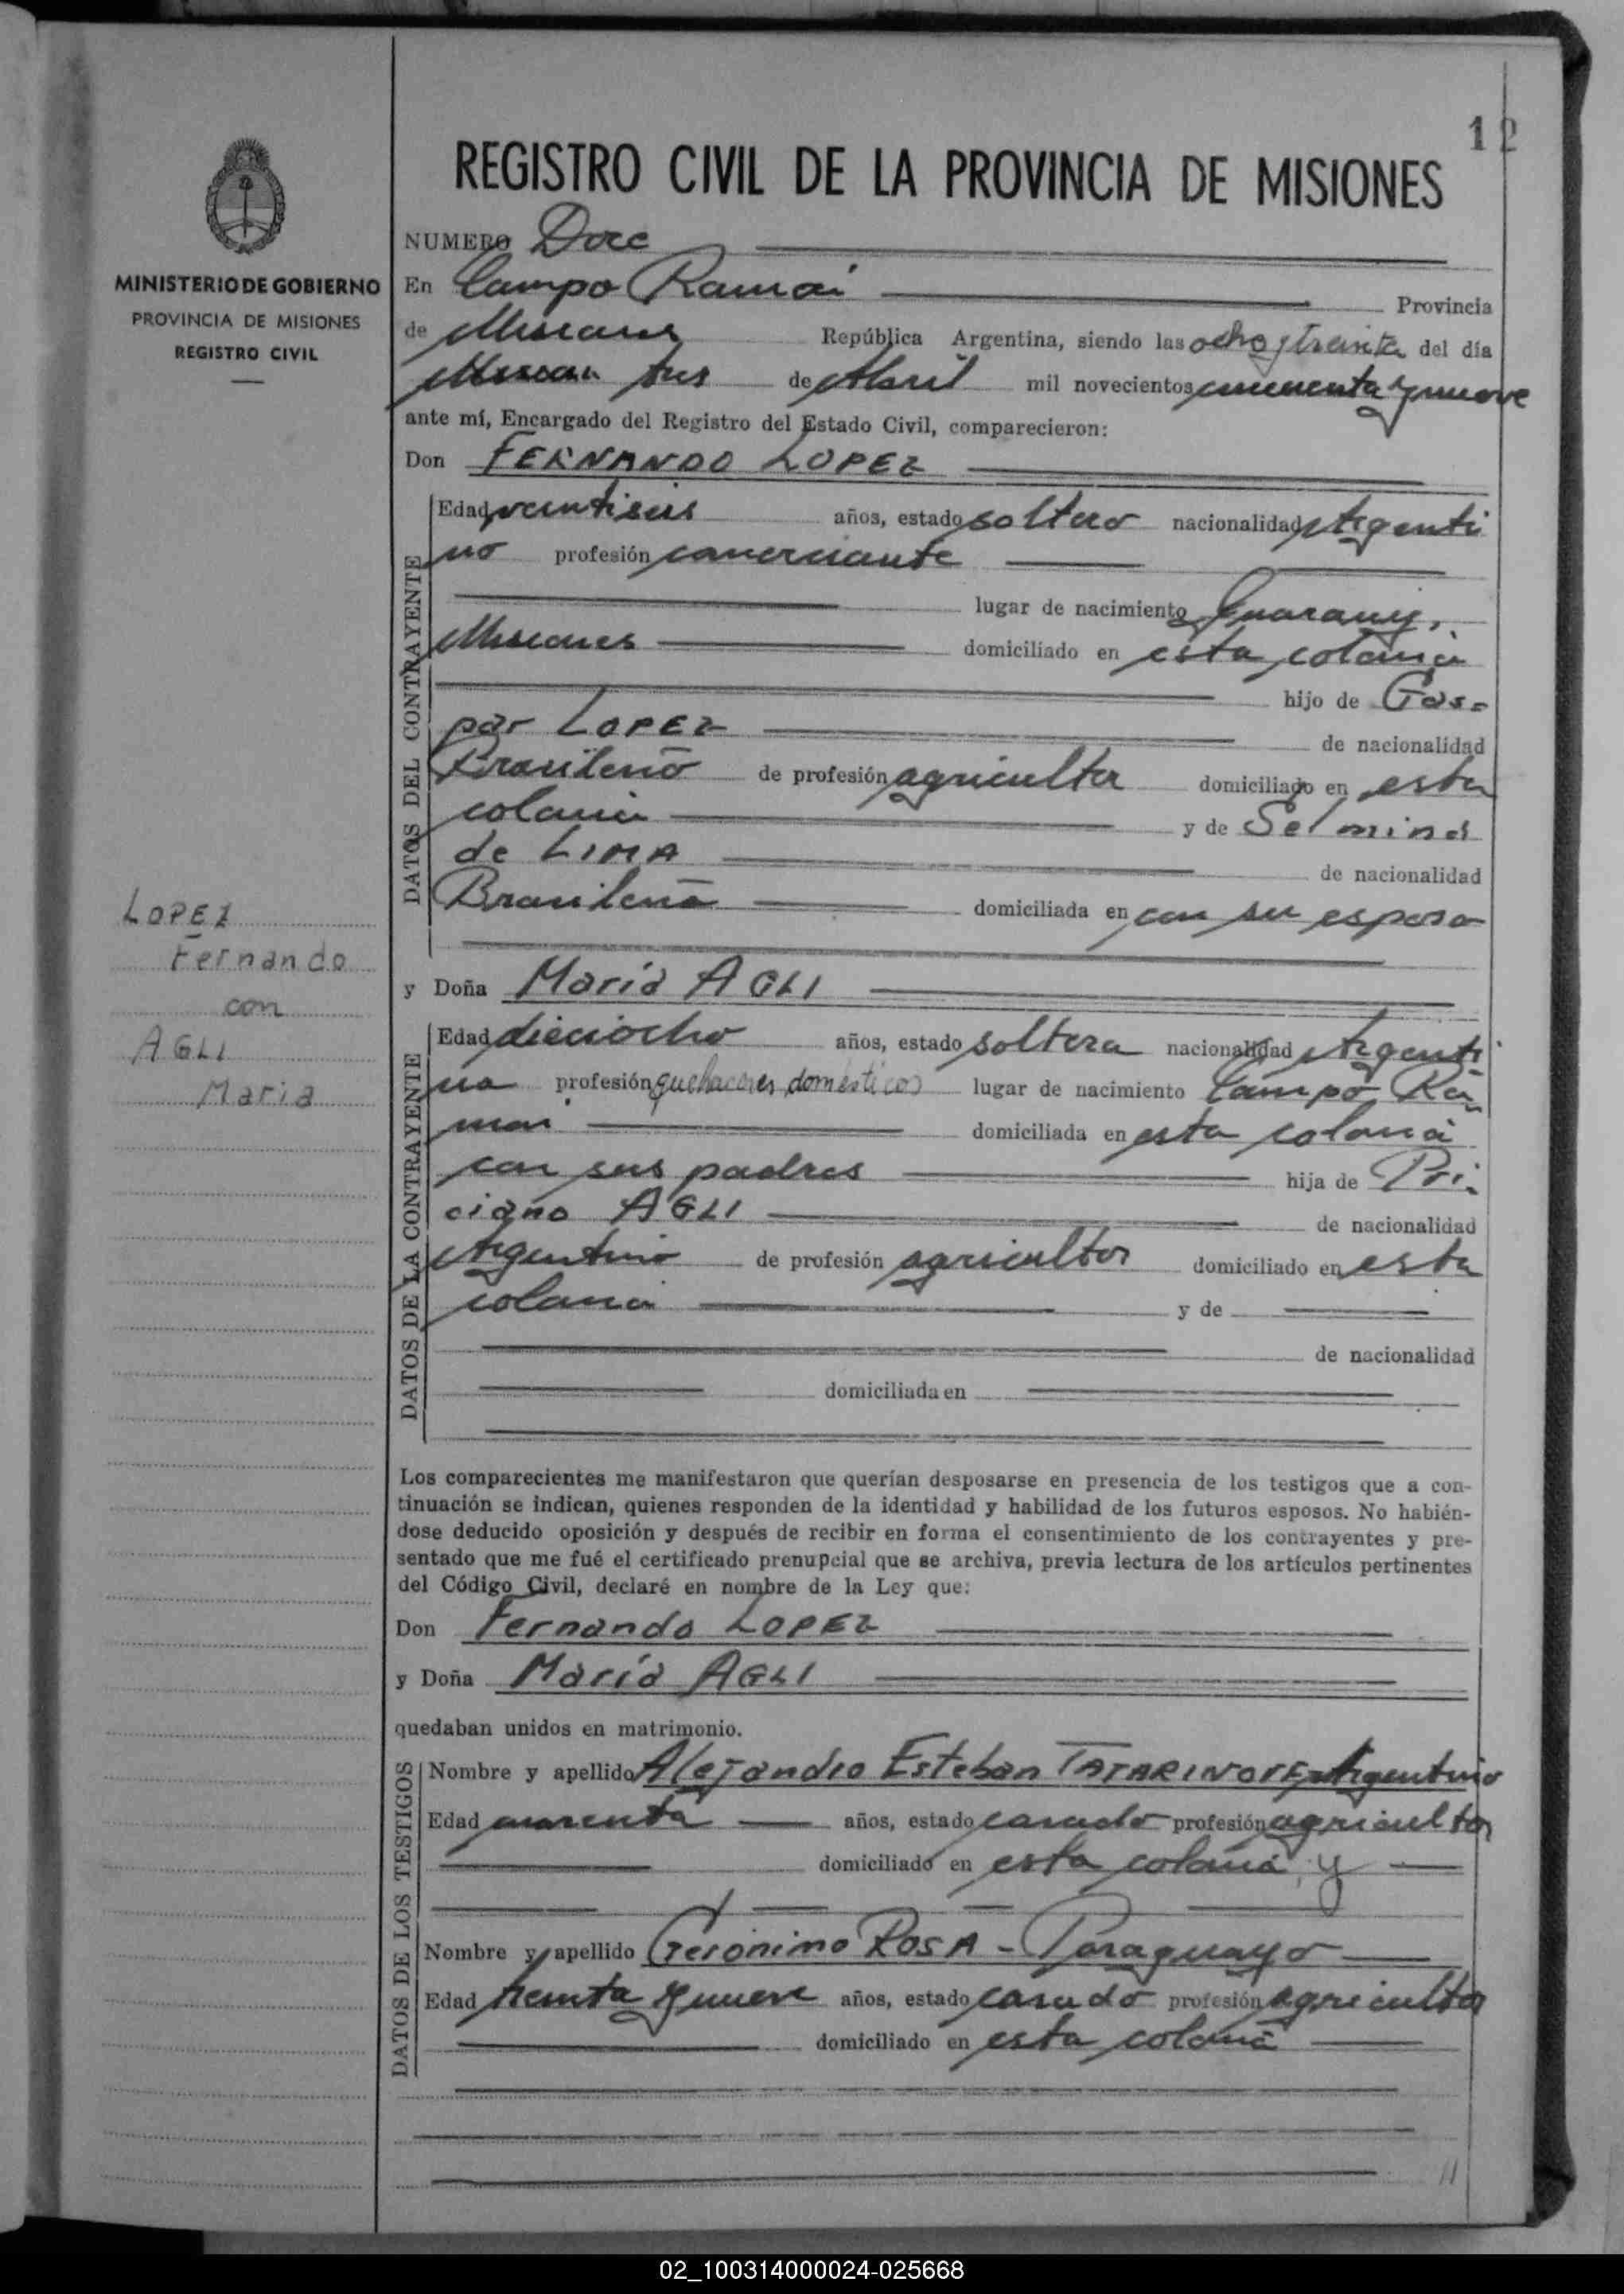 12
REGISTRO CIVIL DE LA PROVINCIA DE MISIONES
MINISTERIO DE GOBIERNO
PROVINCIA DE MISIONES
REGISTRO CIVIL
LOPEZ
Fernando
con
AGLI
Maria
NUMERO Doce
En Campo Ramón Provincia
de Misiones República Argentina, siendo las ocho y treinta del día
tres de Abril mil novecientos cincuenta y nueve
ante mí, Encargado del Registro del Estado Civil, comparecieron:
Don FERNANDO LOPEZ
DATOS DEL CONTRAYENTE
Edad veintiseis años, estado soltero nacionalidad Argenti
no profesión comerciante
lugar de nacimiento Guarany,
Misiones domiciliado en esta colonia
hijo de Gas-
par LOPEZ de nacionalidad
Brasileño de profesión agricultor domiciliado en esta
colonia y de Selmina
de LIMA de nacionalidad
Brasileña domiciliada en con su esposo
y Doña María AGLI
DATOS DE LA CONTRAYENTE
Edad dieciocho años, estado soltera nacionalidad Argenti
na profesión quehaceres domesticos lugar de nacimiento Campo Ra
món domiciliada en esta colonia
con sus padres hija de Pri-
ciano AGLI de nacionalidad
Argentino de profesión agricultor domiciliado en esta
colonia y de
de nacionalidad
domiciliada en
Los comparecientes me manifestaron que querían desposarse en presencia de los testigos que a con-
tinuación se indican, quienes responden de la identidad y habilidad de los futuros esposos. No habién-
dose deducido oposición y después de recibir en forma el consentimiento de los contrayentes y pre-
sentado que me fué el certificado prenupcial que se archiva, previa lectura de los artículos pertinentes
del Código Civil, declaré en nombre de la Ley que:
Don Fernando LOPEZ
y Doña María AGLI
quedaban unidos en matrimonio.
DATOS DE LOS TESTIGOS
Nombre y apellido Alejandro Esteban Argentino
Edad cuarenta años, estado casado profesión agricultor
domiciliado en esta colonia y
Nombre y apellido Gerónimo ROSA - Paraguayo
Edad treinta y nueve años, estado casado profesión agricultor
domiciliado en esta colonia
11
02_100314000024-025668